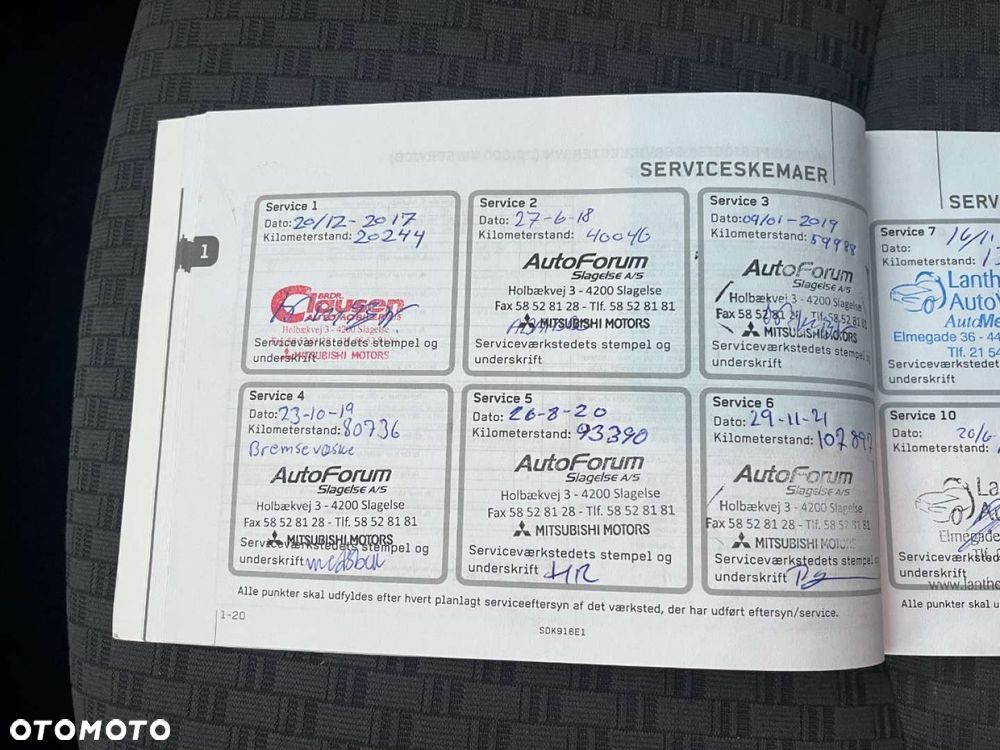 SERVICESKEMAER
1
Service 1
Dato: 20/12-2017
Kilometerstand: 20244
BRDR.
Clausen
Holbækvej 3 - 4200 Slagelse
MITSUBISHI MOTORS
Serviceværkstedets stempel og
underskrift
Service 2
Dato: 27-6-18
Kilometerstand: 40046
AutoForum
Slagelse A/S
Holbækvej 3 - 4200 Slagelse
Fax 58 52 81 28 - Tlf. 58 52 81 81
MITSUBISHI MOTORS
Serviceværkstedets stempel og
underskrift
Service 3
Dato: 09/01-2019
Kilometerstand: 59988
AutoForum
Slagelse A/S
Holbækvej 3 - 4200 Slagelse
Fax 58 52 81 28 - Tlf. 58 52 81 81
MITSUBISHI MOTORS
Serviceværkstedets stempel og
underskrift
Service 4
Dato: 23-10-19
Kilometerstand: 80736
Bremsevæske
AutoForum
Slagelse A/S
Holbækvej 3 - 4200 Slagelse
Fax 58 52 81 28 - Tlf. 58 52 81 81
MITSUBISHI MOTORS
Serviceværkstedets stempel og
underskrift
Service 5
Dato: 26-8-20
Kilometerstand: 93390
AutoForum
Slagelse A/S
Holbækvej 3 - 4200 Slagelse
Fax 58 52 81 28 - Tlf. 58 52 81 81
MITSUBISHI MOTORS
Serviceværkstedets stempel og
underskrift HR
Service 6
Dato: 29-11-21
Kilometerstand: 102897
AutoForum
Slagelse A/S
Holbækvej 3 - 4200 Slagelse
Fax 58 52 81 28 - Tlf. 58 52 81 81
MITSUBISHI MOTORS
Serviceværkstedets stempel og
underskrift
Alle punkter skal udfyldes efter hvert planlagt serviceeftersyn af det værksted, der har udført eftersyn/service.
1-20
SDK916E1
SERV
Service 7
Dato: 16/1
Kilometerstand: 1
Lanth
Auto
AutoMe
Elmegade 36 - 44
Tlf. 21 54
Serviceværksted
underskrift
Service 10
Dato: 20/6
Kilometerstand:
La
Elmegade
Serviceværksted
underskrift
www.lanthe
Alle punkter skal u
OTOMOTO